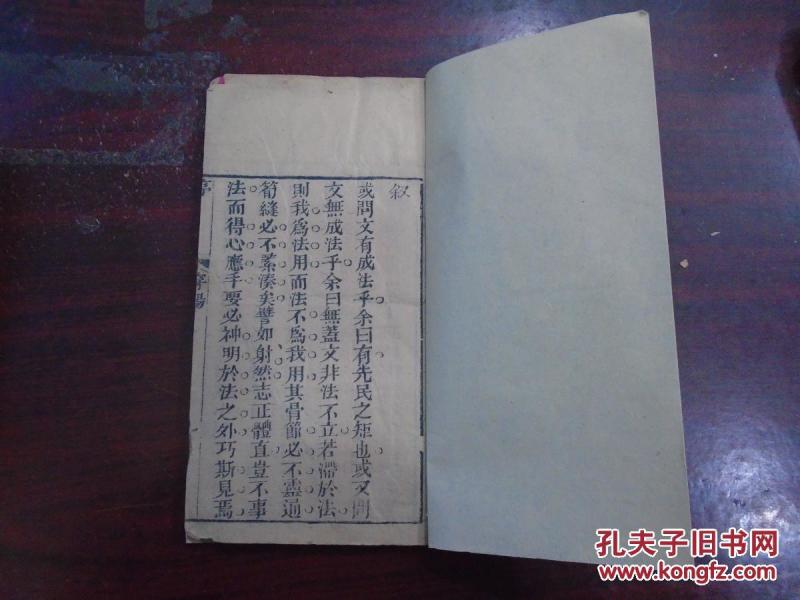 叙
或問文有成法乎余曰有先民之矩也或又問
文無成法乎余曰無蓋文非法不立若滯於法
則我爲法用而法不爲我用其骨節必不靈通
筍縫必不湊矣譬如射然志正體直豈不事
法而得心應手要必神明於法之外巧斯見焉
孔夫子旧书网
www.kongfz.com